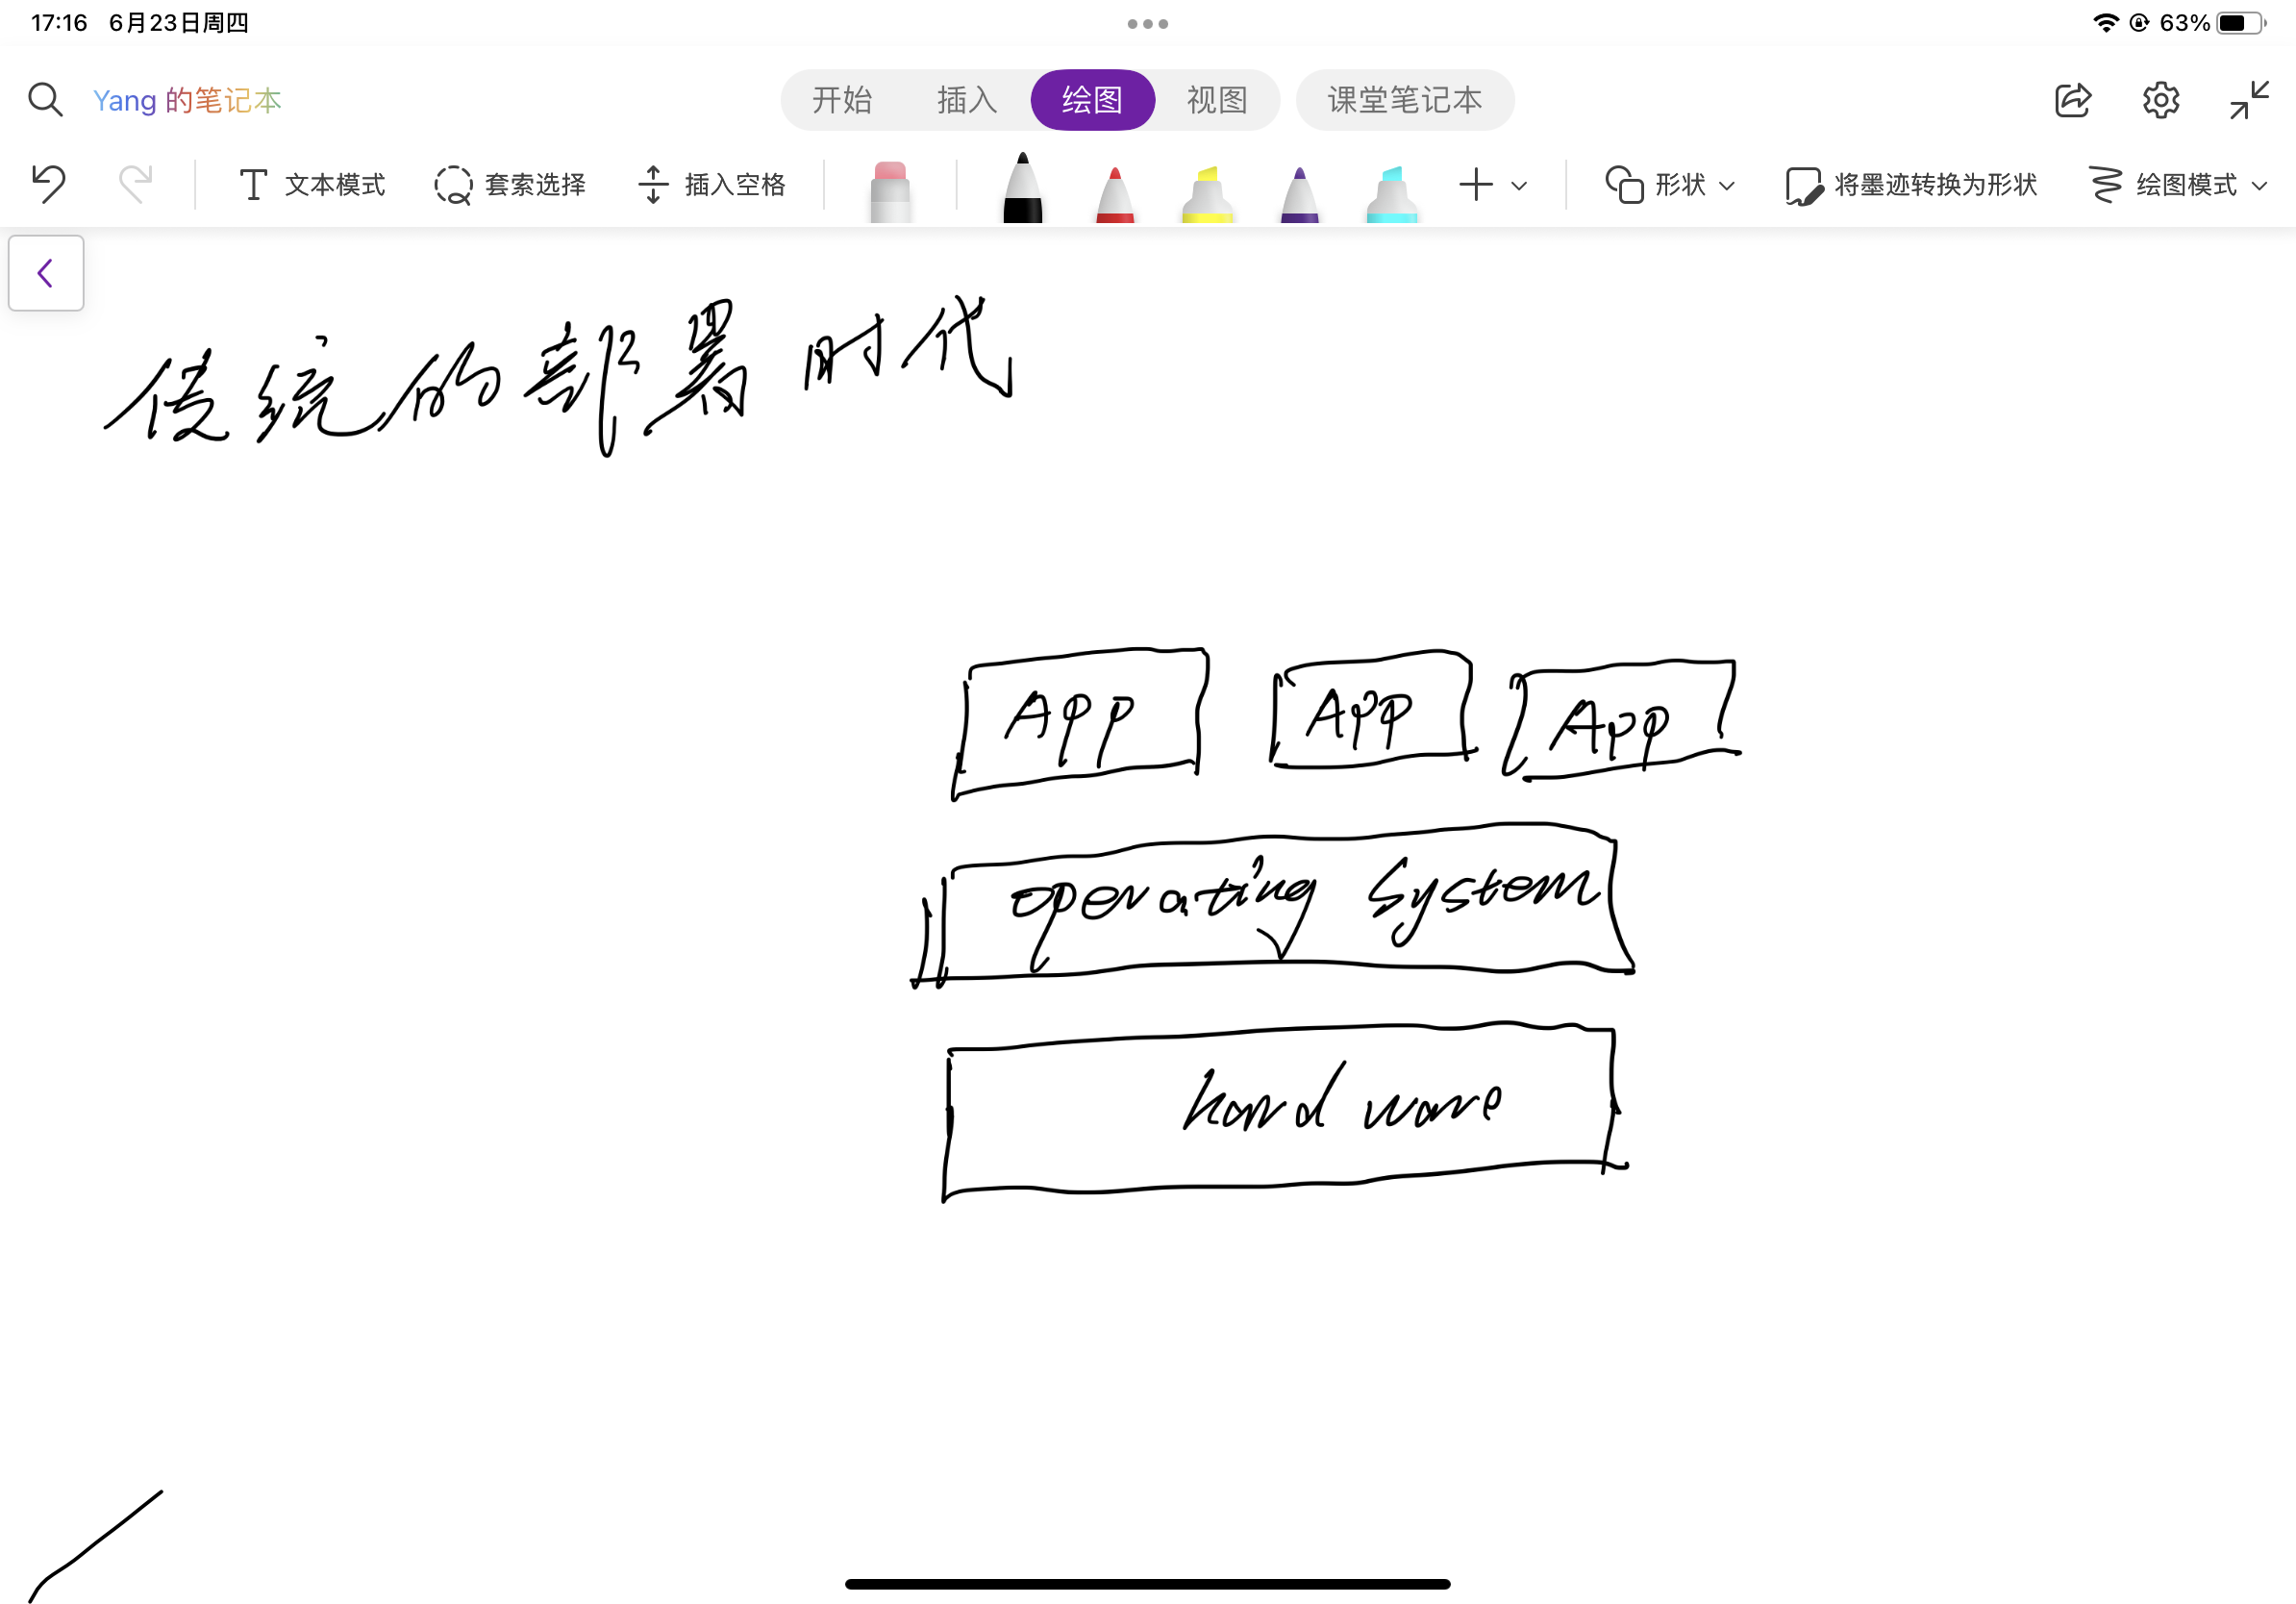 17:16 6月23日周四 63%
Yang 的笔记本 开始 插入 绘图 视图 课堂笔记本
文本模式 套索选择 插入空格 形状 将墨迹转换为形状 绘图模式
传统的部署时代
App App App
operating System
hard ware